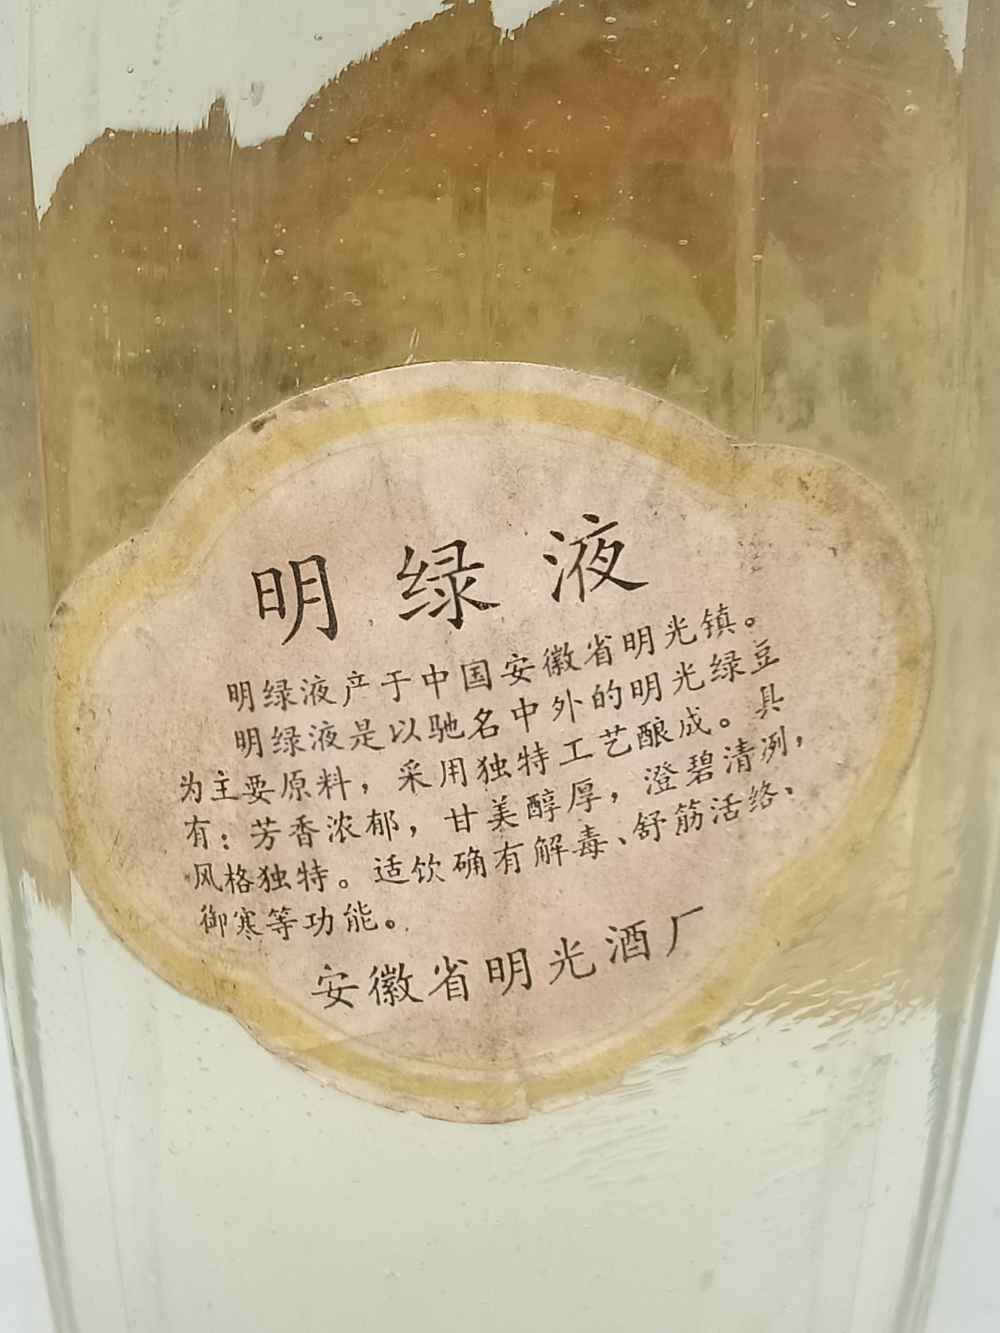 明绿液
明绿液产于中国安徽省明光镇。
明绿液是以驰名中外的明光绿豆
为主要原料，采用独特工艺酿成。具
有：芳香浓郁，甘美醇厚，澄碧清冽，
风格独特。适饮确有解毒、舒筋活络、
御寒等功能。
安徽省明光酒厂